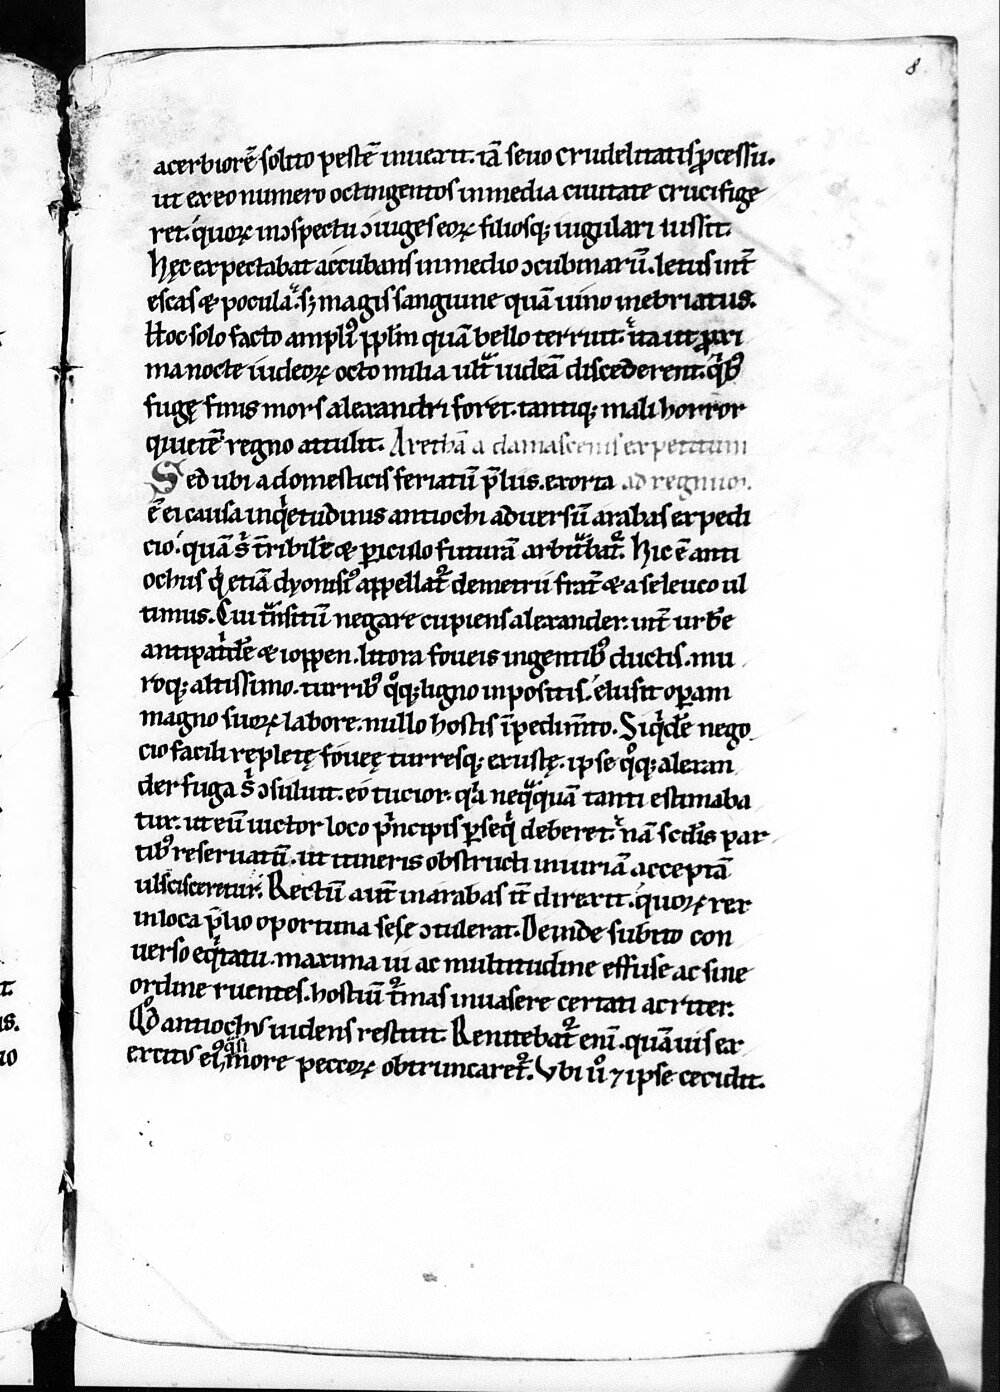 8
acerbiorē solito pestē inuexit. iā seuo crudelitatis ꝓcessu.
ut ex eo numero octingentos in media ciuitate crucifige
ret. quoꝝ in ↄspectu ↄiuges eoꝝ filiosq; iugulari iussit.
Hęc expectabat accubans in medio ↄcubinarū. letus int̄
escas & pocula. sꝫ magis sanguine quā uino inebriatus.
Hoc solo facto ampliꝰ ppl̄m quā bello terruit. ita ut proxi
ma nocte iudeoꝝ octo milia ult̄ iudeā discederent. qͥbꝰ
fugę finis mors alexandri foret. tantiq; mali horror
quietē regno attulit. Arethā a damascenis expetitum
Sed ubi a domesticis feriatū p̄lus. exorta ad regnum.
ē ei causa inqͥetudinis antiochi aduersū arabas expedi
cio. quā s̄ t̄ribilē & ꝑiculo futurā arbit̄bat᷑. Hic ē anti
ochus qͥ etiā dyonisiꝰ appellat᷑ demetrii frat̄ & a seleuco ul
timus. Cui t̄nsitū negare cupiens alexander. int̄ urbē
antipatͥdē & ioppen. litora foueis ingentibꝰ ductis. mu
roq; altissimo. turribꝰ qͦq; ligno inpositis. elusit oꝑam
magno suoꝝ labore. nullo hostis īpedim̄to. Siqͥdē nego
cio facili repletę fouęę turresq; exustę. ipse qͦq; alexan
der fuga s̄ ↄsuluit. eo tucior. qͥa neqͣquā tanti estimaba
tur. ut eū uictor loco pͥncipis ꝑseqͥ deberet. nā scd̄is par
tibꝰ reseruatū. ut itineris obstructi iniuriā acceptā
ulscisceretur. Rectū aut̄ in arabas it̄ direxit. quoꝝ rex
in loca p̄lio oportuna sese ↄtulerat. Deinde subito con
uerso eqͥtatu. maxima ui ac multitudine effuse ac sine
ordine ruentes. hostiū t᷑mas inuasere certati acriter.
Qd̄ antiochus uidens restitit. Renitebat᷑ enī. quāuis ex
ercitus eiꝰ qͣsi more peccoꝝ obtruncaret᷑. Vbi ū ⁊ ipse cecidit.